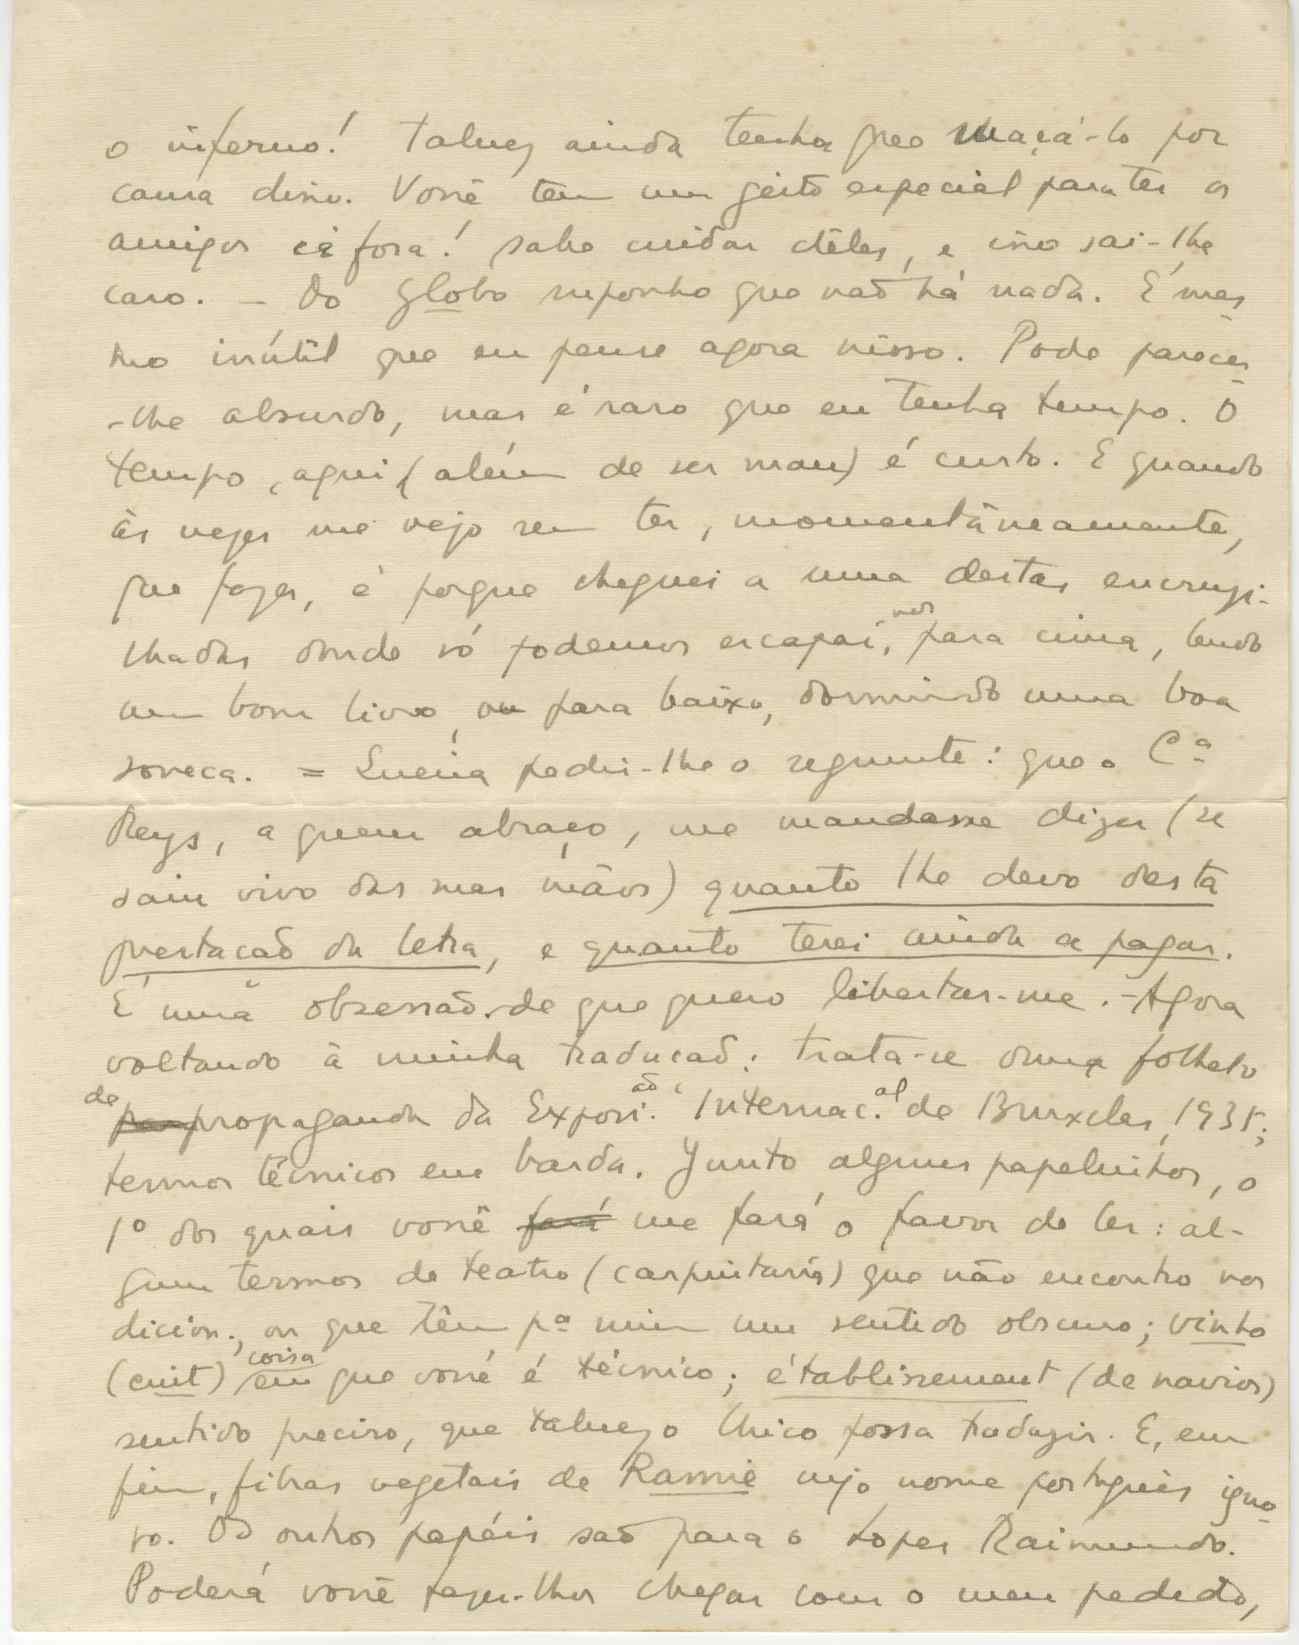 o inferno! Talvez ainda tenha que maçá-lo por
causa disso. Você tem um geito especial para ter os
amigos cá fora! Sabe cuidar dêles, e isso sai-lhe
caro. – Do Globo suponho que naõ há nada. É mes-
mo inútil que eu pense agora nisso. Pode parecer-
-lhe absurdo, mas é raro que eu tenha tempo. O
tempo, aqui (além de ser mau) é curto. E quando
às vezes me vejo sem ter, momentâneamente,
que fazer, é porque cheguei a uma destas encruzi-
lhadas donde só podemos escapar, para cima, lendo
um bom livro, ou para baixo, dormindo uma boa
soneca. = Queria pedir-lhe o seguinte: que o Cª
Reys, a quem abraço, me mandasse dizer (se
saiu vivo das suas mãos) quanto lhe devo desta
prestacaõ da letra, e quanto terei ainda a pagar.
É uma obsessão de que quero libertar-me. – Agora
voltando à minha traducaõ: trata-se duma folheto
de propaganda da Exposi.ão Internac.al de Bruxelas, 1935;
termos técnicos em barda. Junto alguns papeluchos, o
1º dos quais você fará me fará o favor de ler: al-
guns termos de teatro (carpintaria) que não encontro nos
dicion., ou que têm pª mim um sentido obscuro; vinho
(cuit) coisa em que você é técnico; établissement (de navios)
sentido preciso, que talvez o Chico possa traduzir. E, em
fim, fibras vegetais de Ramie cujo nome português igno-
ro. Os outros papéis saõ para o Lopes Raimundo.
Poderá você fazer-lhos chegar com o meu pedido,